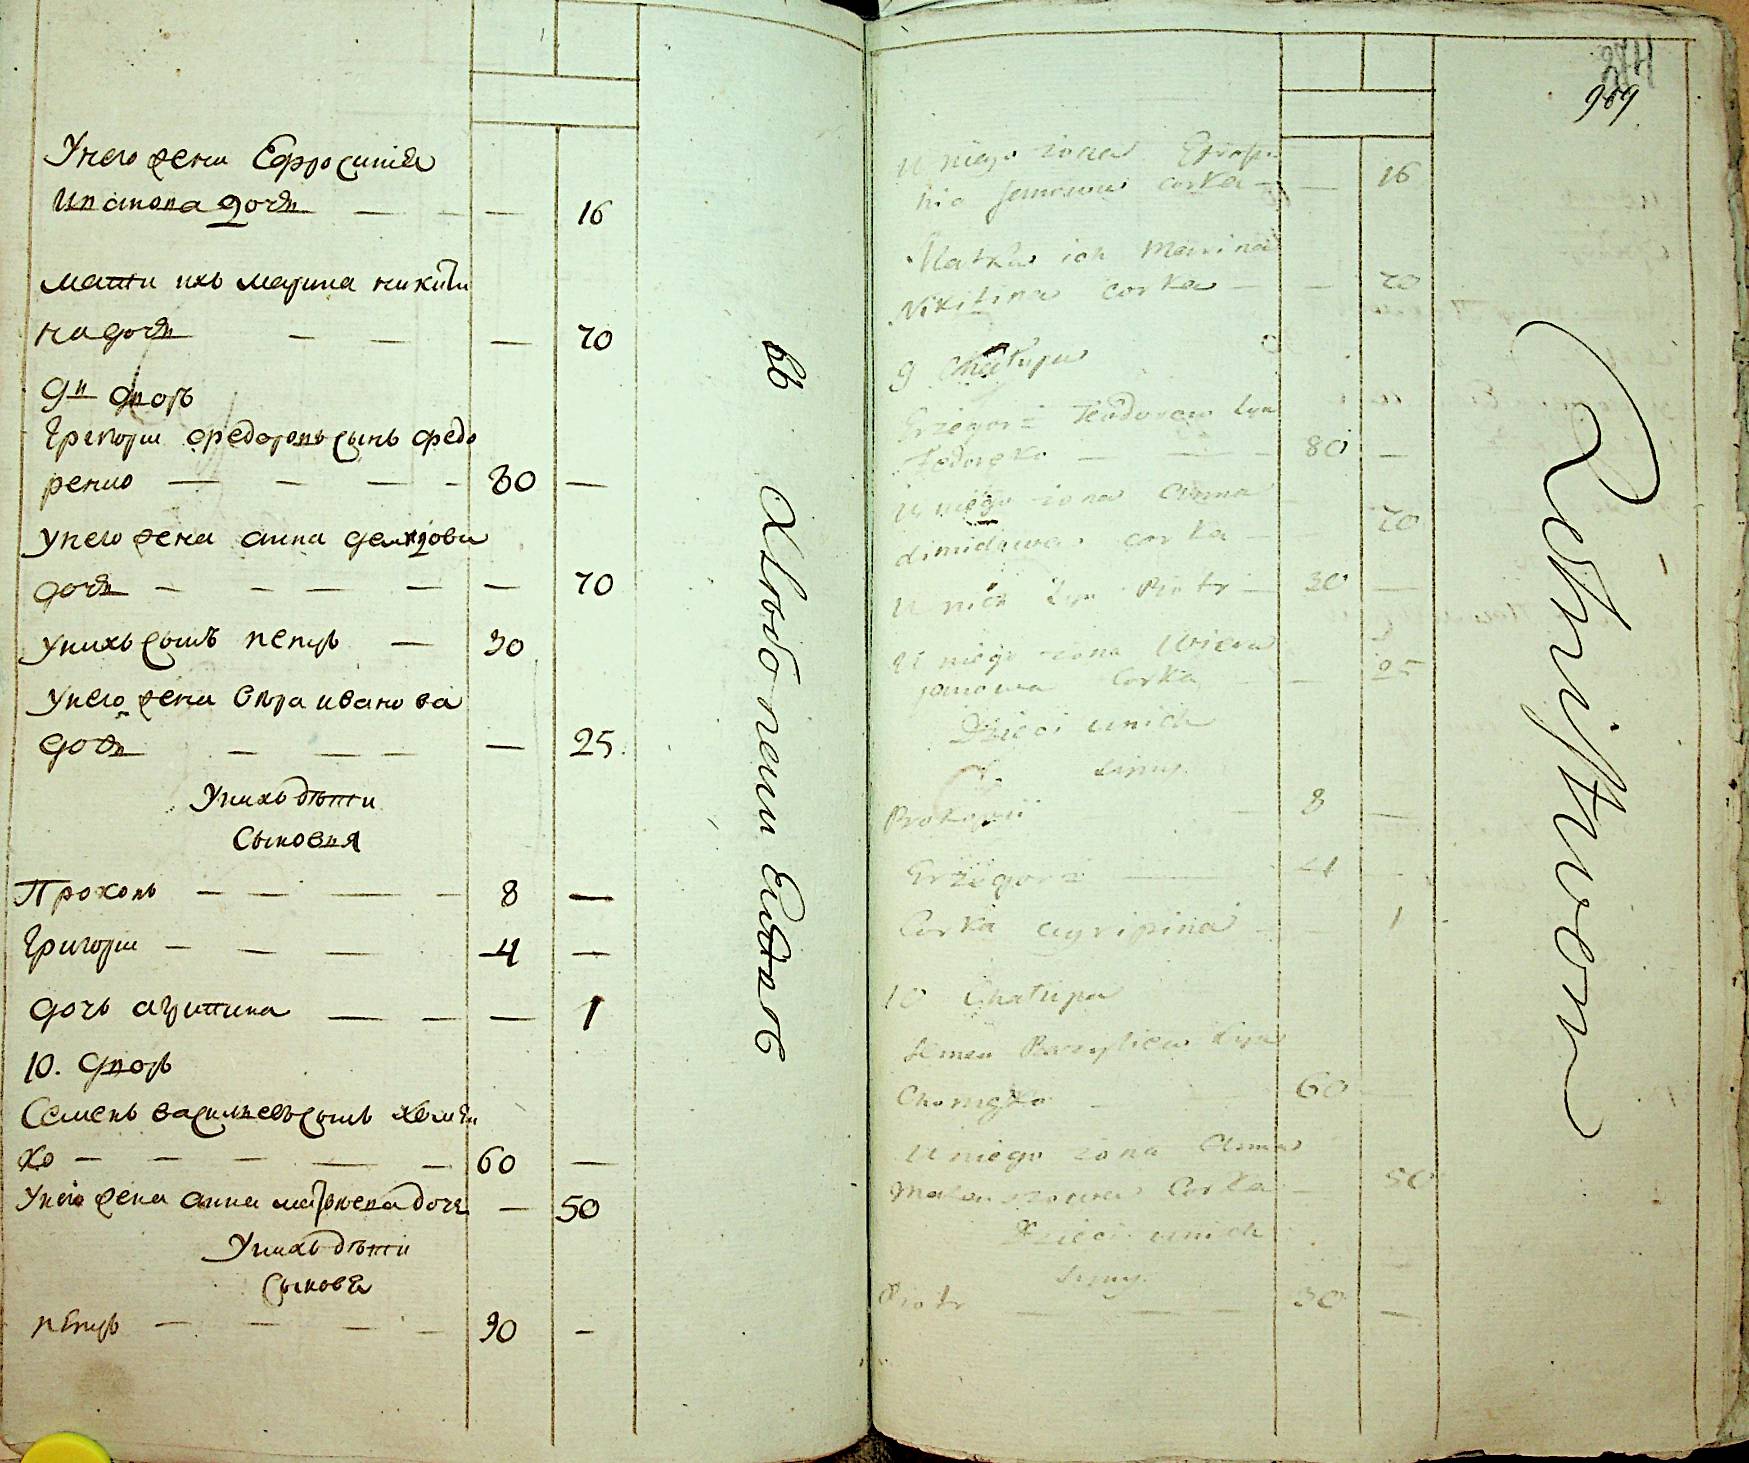 Унего жена Ефросинія
Иванова дочь — — — 16
мати ихъ марина никити
на дочь — — — 70
9й дворъ
Григоріи федоровъ сынъ федо
ренко — — — - 80 —
унего жена анна демидова
дочь — - — — — 70
унихъ сынъ петръ — 30
унего жена вѣра иванова
дочь — — — — 25.
Унихъ дѣти
Сыновья
Прокопъ — — — - 8 —
Григоріи — — — 4 —
дочь агрипина — — — 1
10. дворъ
Семенъ васильевъ сынъ хомен
ко — — — — — 60 —
Унего жена анна дочь — 50
Унихъ дѣти
Сыновья
петръ — — — - 30 -
274
969
u niego zona
hia corka — — 16
Matka ich Marina
Nikitina corka — — 70
9 Chałupa
Grzegorz Teodorow syn
Fedoręko — — - 80 —
u niego zona Anna
dimidowa corka — — 70
u nich syn Piotr — 30 —
u niego zona Wiera
janowa Corka — — 25
Dzieci unich
Synny
Prokopii — 8 —
Grzegorz — 4 -
Corka agripina — — 1
10 Chałupa
Semen syn
60 —
u niego zona Anna
Corka — 50
Dzieci unich
Synny
Piotr — — — 30 —